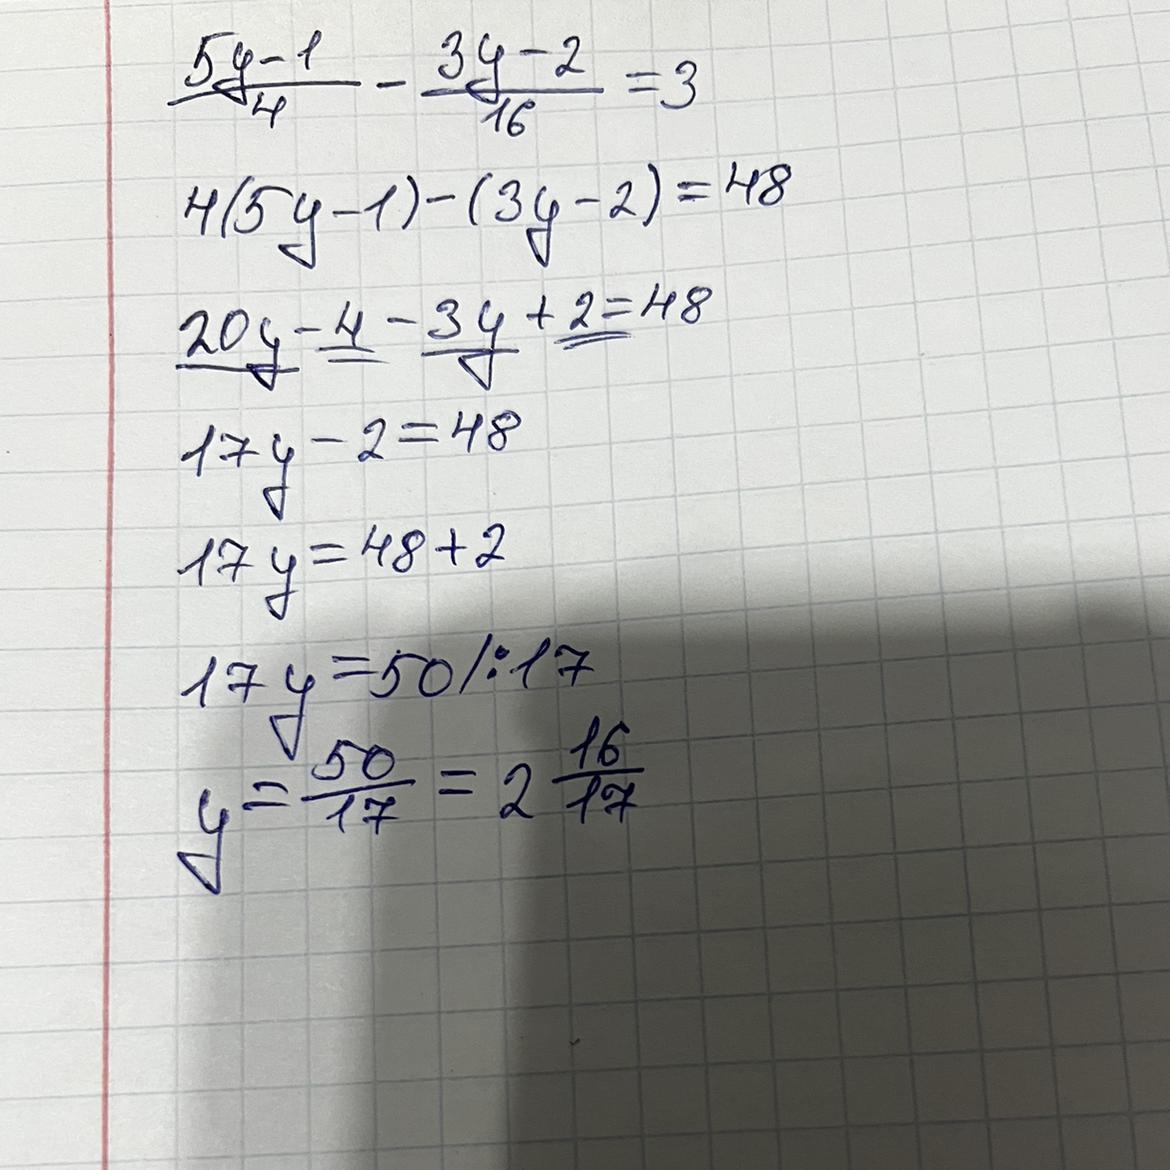 (5y-1)/4 - (3y-2)/16 = 3
4(5y-1)-(3y-2)=48
20y-4-3y+2=48
17y-2=48
17y=48+2
17y=50/:17
y=50/17=2 16/17